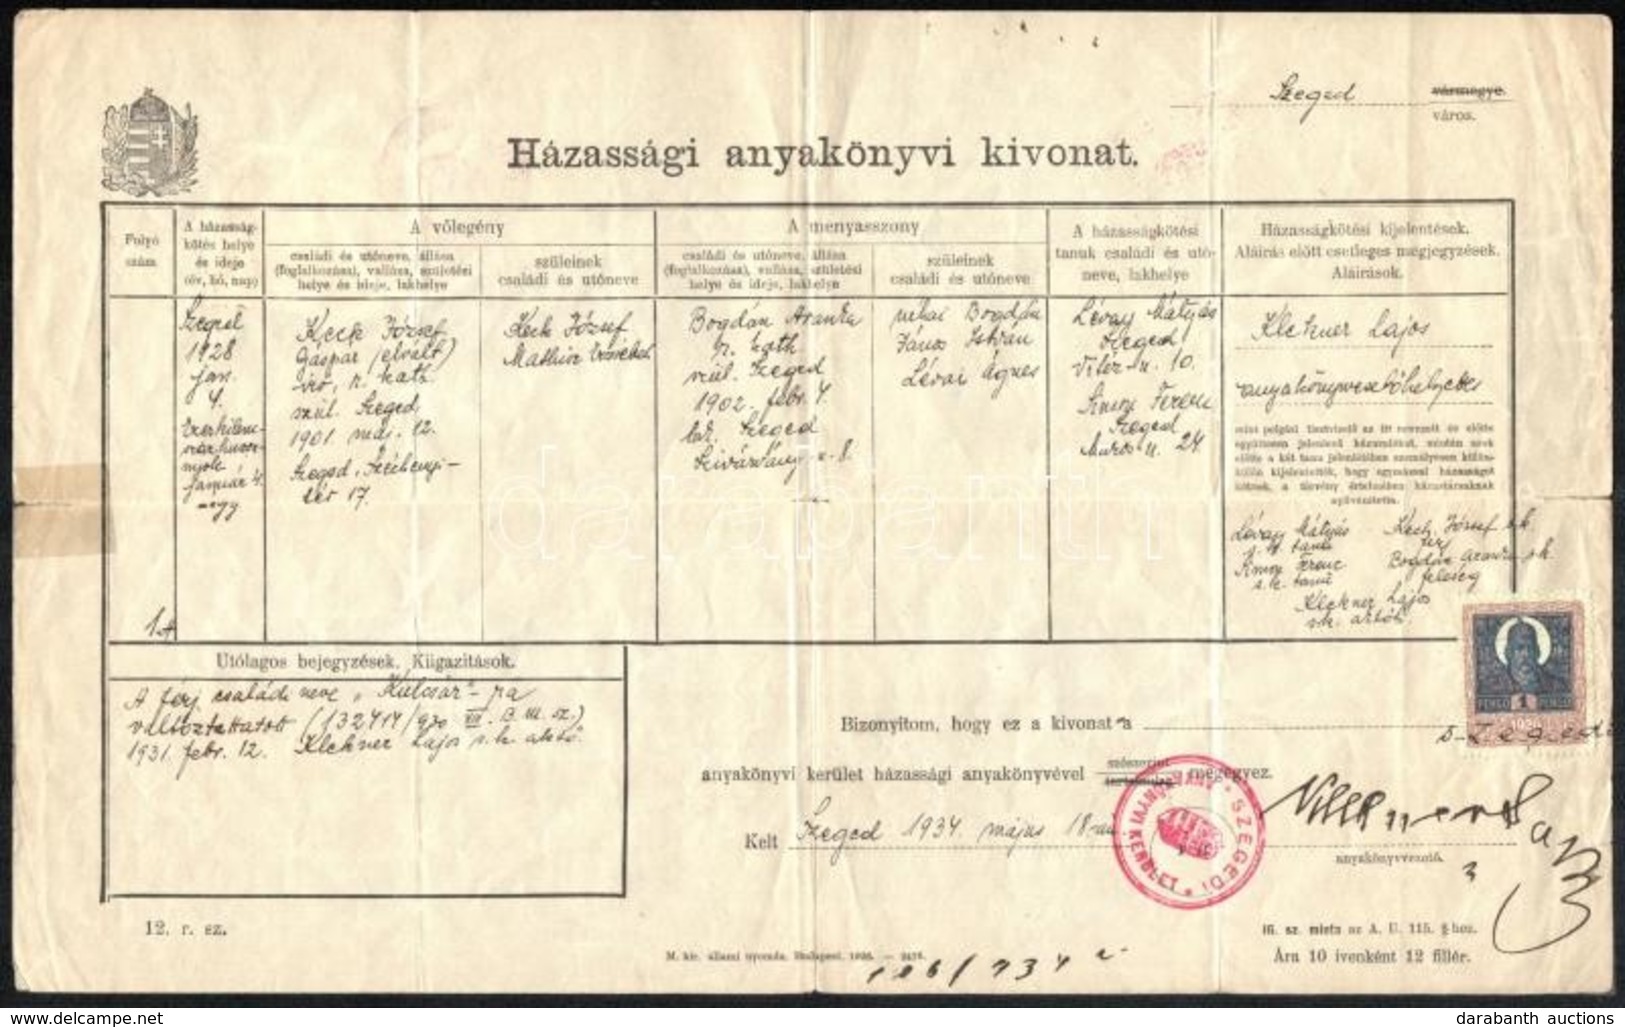 Szeged
vármegye.
város.
Házassági anyakönyvi kivonat.
Folyó
szám
A házasság-
kötés helye
és ideje
(év, hó, nap)
A vőlegény
családi és utóneve, állása
(foglalkozása), vallása, születési
helye és ideje, lakhelye
szüleinek
családi és utóneve
A menyasszony
családi és utóneve, állása
(foglalkozása), vallása, születési
helye és ideje, lakhelye
szüleinek
családi és utóneve
A házasságkötési
tanuk családi és utó-
neve, lakhelye
Házasságkötési kijelentések.
Aláírás előtt esetleges megjegyzések.
Aláírások.
Szeged
1928
jan.
4.
Ezerkilenc-
száz huszon-
nyolc
január 4.
Keck József
Gáspár (elvált)
r. kath.
szül. Szeged
1901. máj. 12.
Szeged, Széchenyi-
tér 17.
Keck József
Bogdán Aranka
r. kath
szül. Szeged
1902. febr. 4.
lak. Szeged
Szivárvány u. 8.
néhai Bogdán
János István
Lévai Ágnes
Lévay Mátyás
Szeged
Vitéz u. 10.
Ferenc
Szeged
Maros u. 24.
Kleckner Lajos
anyakönyvvezetőhelyettes
mint polgári tisztviselő az itt nevezett és előtte
együttesen jelenlevő házasulókat, miután ezek
előtte a két tanu jelenlétében személyesen külön-
külön kijelentették, hogy egymással házasságot
kötnek, a törvény értelmében házastársaknak
nyilvánította.
Lévay Mátyás Keck József s.k.
s. k. tanu férj
Ferenc Bogdán Aranka s.k.
s. k. tanu feleség
Kleckner Lajos
s.k. akhő.
Utólagos bejegyzések. Kiigazítások.
A férj családi neve „Kulcsár"-ra
változtattatott (132414/930 VII. B. M. sz.)
1931. febr. 12. Kleckner Lajos s.k. akhő.
Bizonyítom, hogy ez a kivonat a
szegedi
anyakönyvi kerület házassági anyakönyvével szószerint megegyez.
tartalmilag
Kelt Szeged 1934. május 18-án
anyakönyvvezető.
SZEGEDI
ANYAKÖNYVI KERÜLET
PENGŐ 1 PENGŐ
12. r. sz.
M. kir. állami nyomda, Budapest, 1926.
16. sz. minta az A. U. 115. §-hoz.
Ára 10 ivenként 12 fillér.
darabanth
www.delcampe.net
darabanth auctions